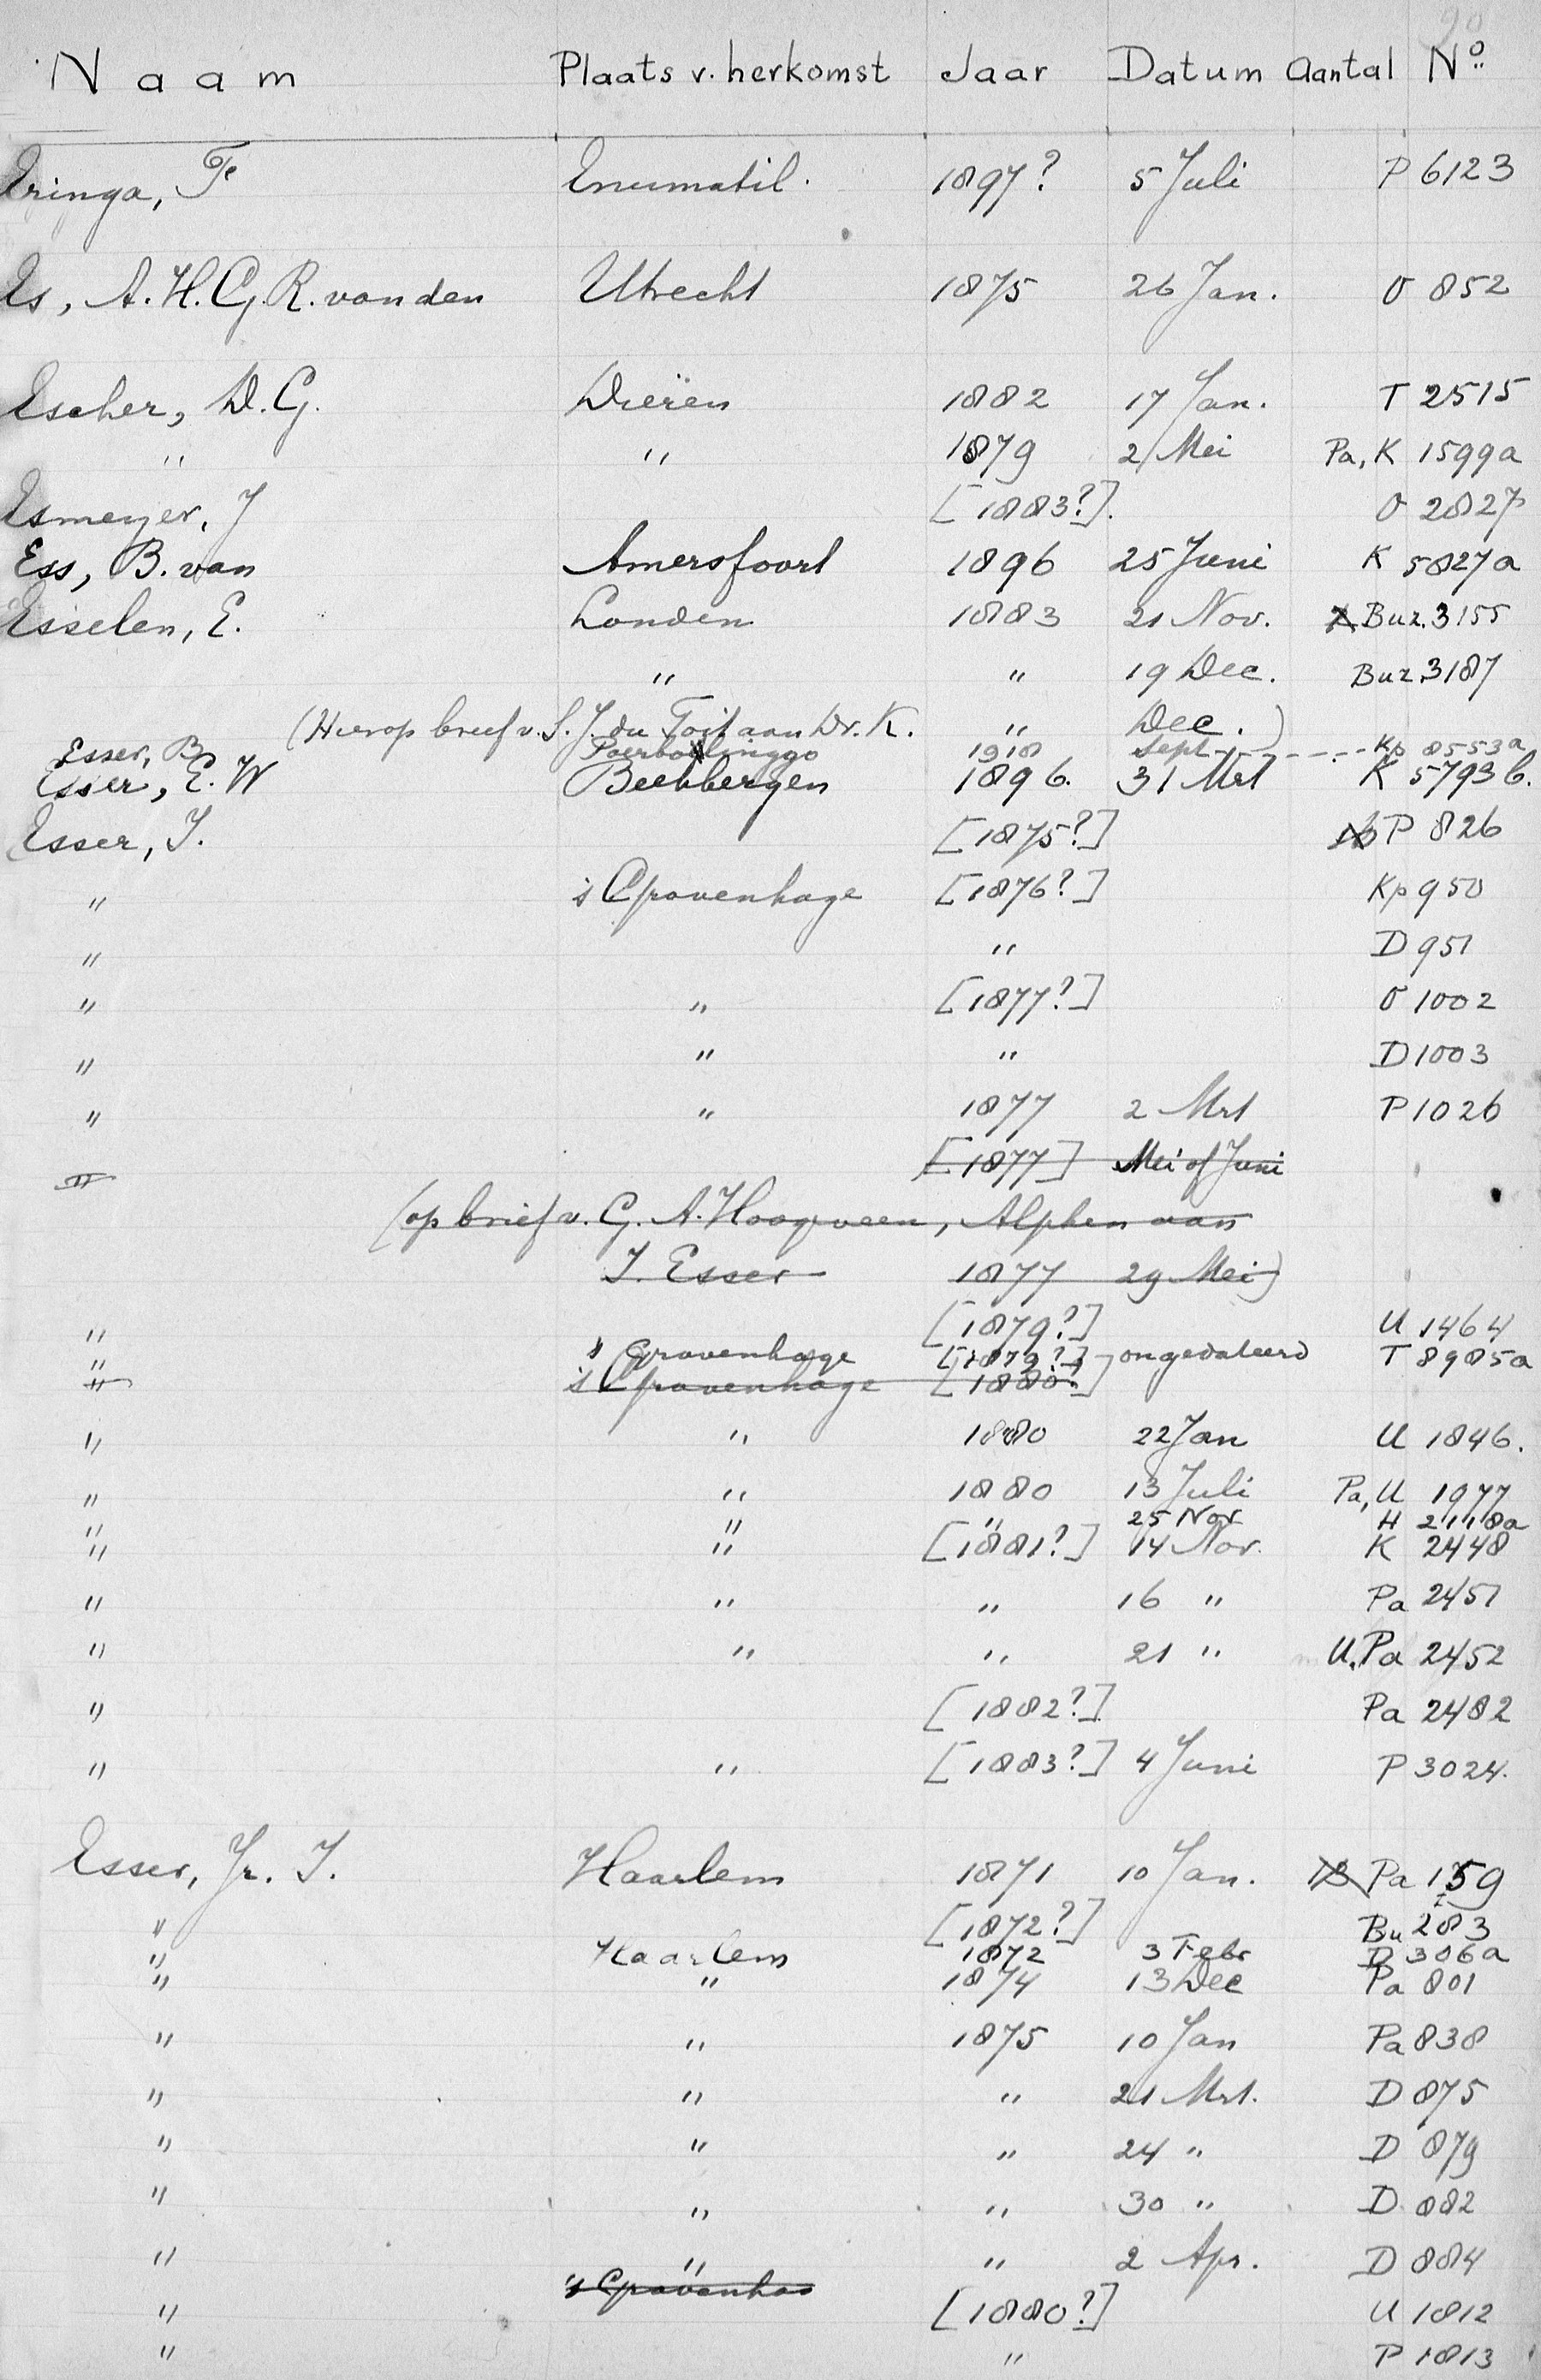 90
Naam Plaats v. herkomst Jaar Datum Aantal No
Eringa, Te Enumatil. 1897? 5 Juli P 6123
Es, A. H. G. R. van den Utrecht 1875 26 Jan. O 852
Escher, D. G. Dieren 1882 17 Jan. T 2515
" " 1879 2 Mei Pa, K 1599a
Esmeyer, J [1883?]. O 2827
Ess, B. van Amersfoort 1896 25 Juni K 5827a
Esselen, E. Londen 1883 21 Nov. Buz. 3155
" " 19 Dec. Buz. 3187
(Hierop brief v. S. J. du Toit aan Dr. K. " Dec.)
Esser, B. Poerbolinggo 1918 Sept - - - - Kp 8553a
Esser, E. W Beekbergen 1896. 31 Mrt K 5793b.
Esser, I. [1875?] P 826
" 's Gravenhage [1876?] Kp 950
" " D 951
" " [1877?] O 1002
" " " D 1003
" " 1877 2 Mrt P 1026
" [1877] Mei of Juni
(op brief v. G. A. Hoogveen, Alphen aan
I. Esser 1877 29 Mei)
" [1879?] U 1464
" 's Gravenhage [1879?] ongedateerd T 8985a
" 's Gravenhage [1880?]
" " 1880 22 Jan U 1846.
" " 1880 13 Juli Pa, U 1977
" " " 25 Nov H 2118a
" " [1881?] 14 Nov. K 2448
" " " 16 " Pa 2451
" " " 21 " U. Pa 2452
" [1882?] Pa 2482
" " [1883?] 4 Juni P 3024.
Esser, Jr. I. Haarlem 1871 10 Jan. Pa 159
" [1872?] Bu 283
" Haarlem 1872 3 Febr D 306a
" " 1874 13 Dec Pa 801
" " 1875 10 Jan Pa 838
" " " 21 Mrt. D 875
" " " 24 " D 879
" " " 30 " D 882
" " " 2 Apr. D 884
's Gravenha
" [1880?] U 1812
" " P 1813